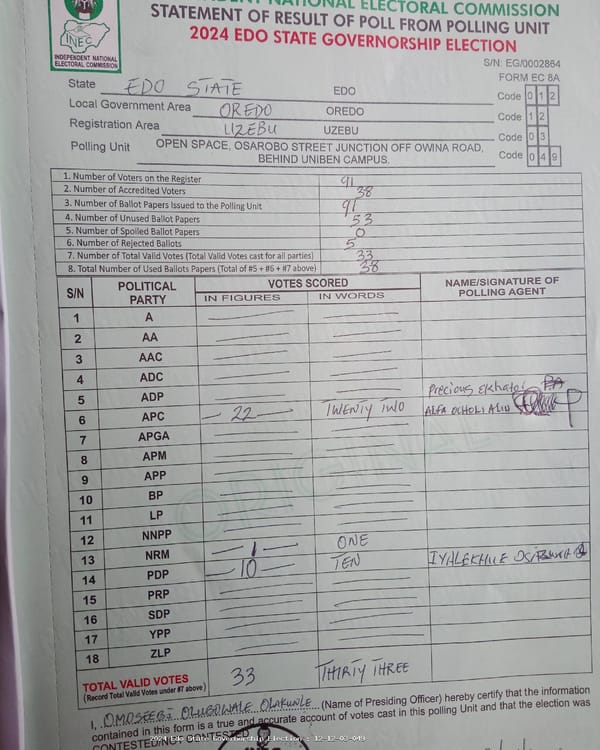 INDEPENDENT NATIONAL ELECTORAL COMMISSION
STATEMENT OF RESULT OF POLL FROM POLLING UNIT
2024 EDO STATE GOVERNORSHIP ELECTION
INEC
INDEPENDENT NATIONAL
ELECTORAL COMMISSION
S/N: EG/0002864
FORM EC 8A
State EDO STATE EDO Code 0 1 2
Local Government Area OREDO OREDO Code 1 2
Registration Area UZEBU UZEBU Code 0 3
Polling Unit OPEN SPACE, OSAROBO STREET JUNCTION OFF OWINA ROAD, BEHIND UNIBEN CAMPUS. Code 0 4 9
1. Number of Voters on the Register 91
2. Number of Accredited Voters 38
3. Number of Ballot Papers Issued to the Polling Unit 91
4. Number of Unused Ballot Papers 53
5. Number of Spoiled Ballot Papers 0
6. Number of Rejected Ballots 5
7. Number of Total Valid Votes (Total Valid Votes cast for all parties) 33
8. Total Number of Used Ballots Papers (Total of #5 + #6 + #7 above) 38
S/N POLITICAL PARTY VOTES SCORED NAME/SIGNATURE OF POLLING AGENT
IN FIGURES IN WORDS
1 A
2 AA
3 AAC
4 ADC
5 ADP Precious
6 APC 22 TWENTY TWO
7 APGA
8 APM
9 APP
10 BP
11 LP
12 NNPP
13 NRM 1 ONE
14 PDP 10 TEN
15 PRP
16 SDP
17 YPP
18 ZLP
TOTAL VALID VOTES 33 THIRTY THREE
(Record Total Valid Votes under #7 above)
I, OMOSEEBI OLUGBOWALE OLAKUNLE (Name of Presiding Officer) hereby certify that the information
contained in this form is a true and accurate account of votes cast in this polling Unit and that the election was
CONTESTED/NOT CONTESTED
2024 Edo State Governorship Election : 12-12-03-049
ORIGINAL